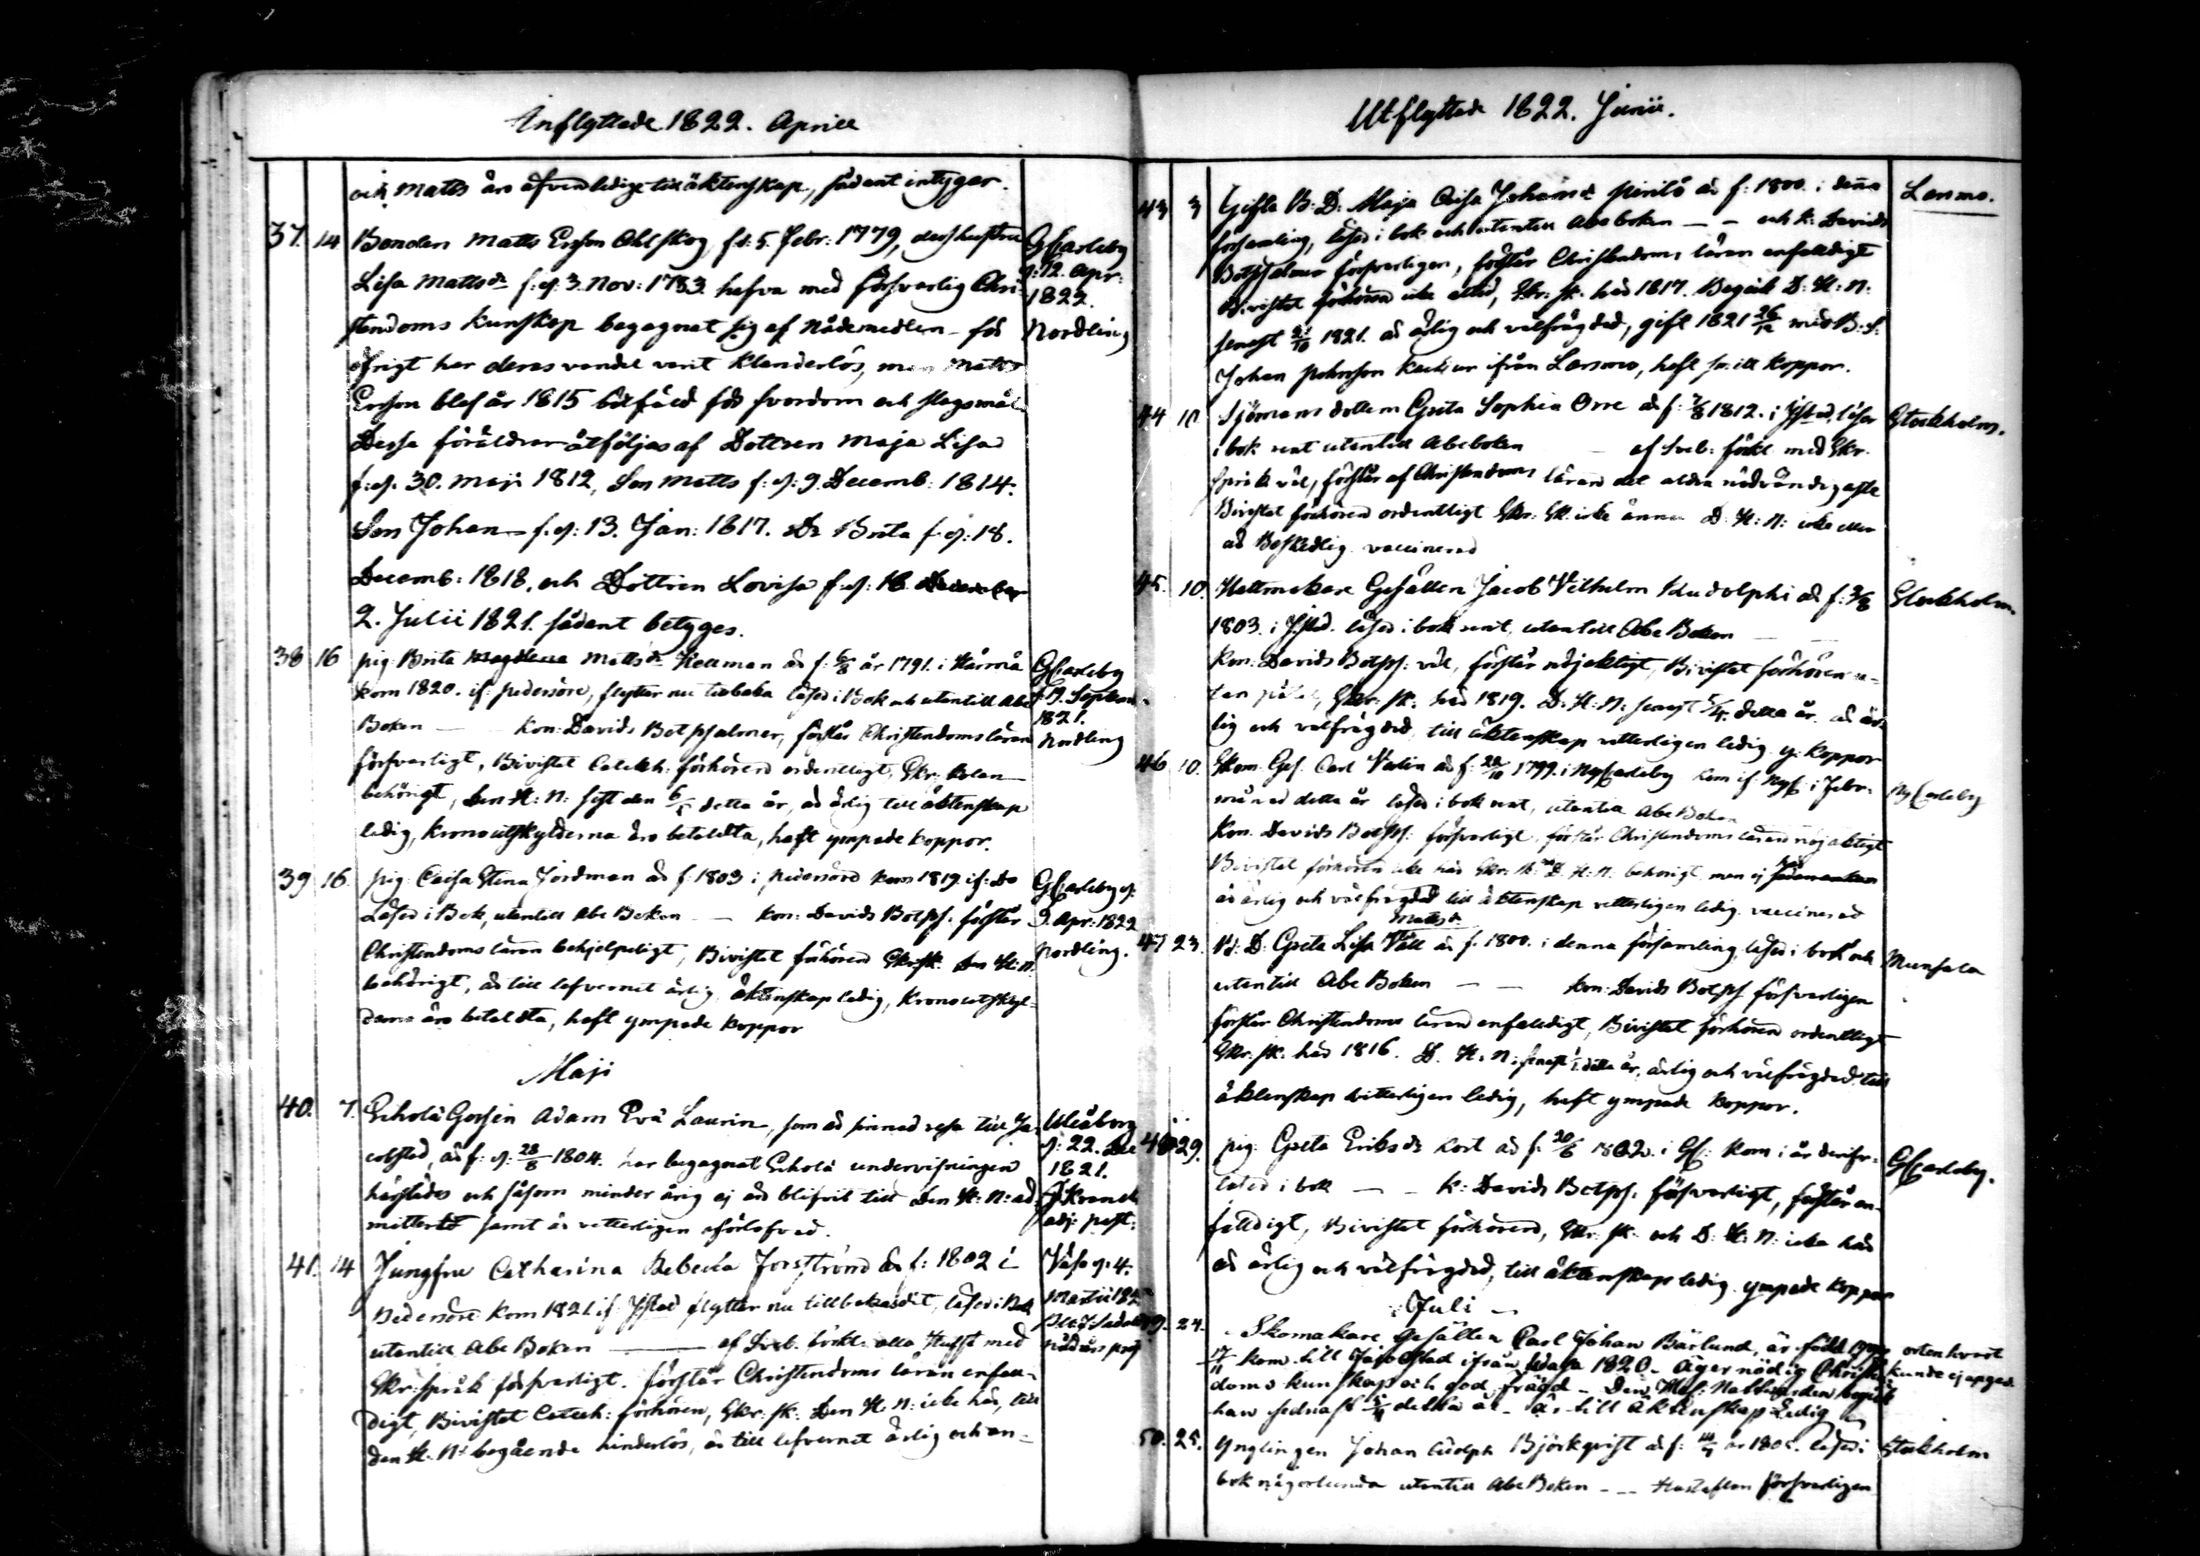 Inflyttade 1822. Aprill
och Matts äro äfven ledige till äktenskap, sådant intygar.
37. 14 Bonden Matts Ersson Ohlskog, f. d: 5. Febr: 1779, dess hustru
Lisa Mattsdr f: d: 3. Nov: 1783. hafva med försvarlig Chri-
stendoms kunskap begagnat sig af Nådemedlen – för
öfrigt har deras vandel varit klanderlös, men Matts
Ersson blef år 1815 bötfäld för svordom och slagsmål
Dessa föräldrar åtföljas af Dottren Maja Lisa
f: d: 30. Maji 1812, Son Matts f: d: 9. Decemb: 1814.
Son Johan f. d: 13. Jan: 1817. Dr Brita f. d: 18.
Decemb: 1818. och Dottren Lovisa f: d: 18 December
2. Julii 1821. sådant betyges.
GCarleby
d: 12. Apr:
1822.
Nordling
38 16 Pig. Brita Magdlena Mattsdr Kellman är f: 6/8 år 1791. i
kom 1820. if: Pedersöre, flyttar nu tillbaka läser i Bok och utantill Abe
Boken — kon: Davids Botpsalmer, förstår Christendoms läran
försvarligt, Bivistat Catekh: förhören ordentligt, Skr:
behörigt, Den H: N: sist den detta år, är ärlig till äktenskap
ledig, Kronoutskylderna äro betaldta, haft ympade koppor.
GCarleby
d. 19. Septem
1821.
Nordling
39 16 Pig. Caisa Stina Jordman är f 1803 i Pedersöre kom 1819. if: Do
Läser i Bok, utantill Abe Boken — kon: Davids Botps. förstår
Christendoms läran behjelpeligt, Bivistat förhören Skrsk. Den H: N.
behörigt, är till lefvernet ärlig äktenskap ledig, Kronoutskyl-
derna äro betaldta, haft ympade koppor
GCarleby d.
9. Apr: 1822
Nordling.
Maji
40. 7. Schola Gossen Adam Laurin, som är sinnad resa till Ja-
cobstad, är f: d: 28/8 1804. har begagnat Schola undervisningen
härstädes och såsom minder årig ej än blifvit till Den H: N: ad-
mitterad samt är vetterligen oförlofvad.
Uleåborg
d: 22. Dec
1821.
J Kranck
adj: past:
41. 14 Jungfru Catharina Rebecka Forsström är f: 1802 i
Pedersöre kom 1821 if. Jstad flyttar nu tillbaka dit, läser i Bok
utantill Abe Boken — af Sveb. förkl. alla Stufft med
Skr: språk försvarligt. förstår Christendoms läran enfal-
digt, Bivistat Catech: förhören, Skr: sk: Den H. N: icke här, till
den H. N: begående hinderlös, är till lefvernet ärlig och an-
Vasa d: 4.
Martii 182
Utflyttade 1822. Junii.
43 3 Gifta B: D: Maja Caisa Johansdr Pirilö är f: 1800. i denna
församling, läser i bok och utantill Abe boken — — och k: Davids
Botpsalmer försvarligen, förstår Christendoms läran enfaldigt
Bivistat förhören icke alltid, Skr: sk. här 1817. Begick D: H: N:
senast 21/10 1821. är ärlig och välfrägdad, gift 1821 26/12 med B: S:
Johan Johnsson ifrån Larsmo, haft koppor.
Larsmo.
44 10 Sjömans dottern Greta Sophia Orre är f: 7/8 1812. i Jstad, läser
i bok rent utantill Abeboken — af Sveb: förkl med Skr.
språk väl, förstår af Christendoms läran det aldra nödvändigaste
Bivistat förhören ordentligt Skr: Sk. icke ännu D: H: N: icke eller
är Beskedlig vaccinerad
Stockholm.
45. 10. Hattmakare Gesällen Jacob Vilhelm Rudolphi är f: 3/8
1803. i Jstad. läser i bok rent, utantill Abe Boken —
Kon: Davids Botps: väl, förstår nöjaktigt, Bivistat förhören u-
tan Skr: sk: här 1819. D: H: N: senast 5/4 detta år. är är-
lig och välfrägdad, till äktenskap vetterligen ledig. y: koppor
Stockholm.
46 10. Skom. Ges. Carl Valin är f: 22/10 1799. i NyCarleby kom if. NyC i Febr.
månad detta år läser i bok rent, utantill Abe Boken
Kon. Davids Botps: försvarligt, förstår Christendoms läran nöjaktigt
Bivistat förhören icke här Skr: D: H: N: behörigt, men ej här
är ärlig och välfrägdad till äktenskap vetterligen ledig. vaccinerad
Ny Carleby
47 23. B: D: Greta Lisa Mattsdr är f. 1800. i denna församling, läser i bok och
utantill Abe Boken — — kon: Davids Botps försvarligen
förstår Christendoms läran enfaldigt, Bivistat förhören ordentligt
Skr. sk. här 1816. D. H. N: senast detta år, ärlig och välfrägdad, till
äktenskap vitterligen ledig, haft ympade koppor.
Munsala
48 29. Pig. Greta Eriksdr Kort är f: 20/6 1802. i GC: kom i år derifr.
läser i bok — — k: Davids Botps. försvarligt, förstår en-
faldigt, Bivistat förhören, Skr. sk. och D: H: N: icke här
är ärlig och välfrägdad, till äktenskap ledig. ympade koppor
GCarleby.
Juli
49. 24. Skomakare Gesällen Carl Johan Bärlund, är född 1799
17/11 kom till Jacobstad ifrån Wasa 1820. – Äger nödig Christen
doms kunskap och god frägd – Den H. Nattvarden begick
han sednast detta år – är till äktenskap Ledig
orten hvart
kunde ej uppges
50. 25. Ynglingen Johan Adolph Björkqvist är f: 14/4 år 1805. läser i
bok någorlunda utantill Abe Boken — — Hustaflan försvarligen
Stockholm